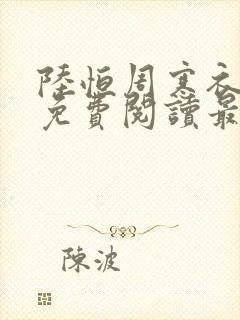 陸恒周寒衣
免費閱讀最
陳波